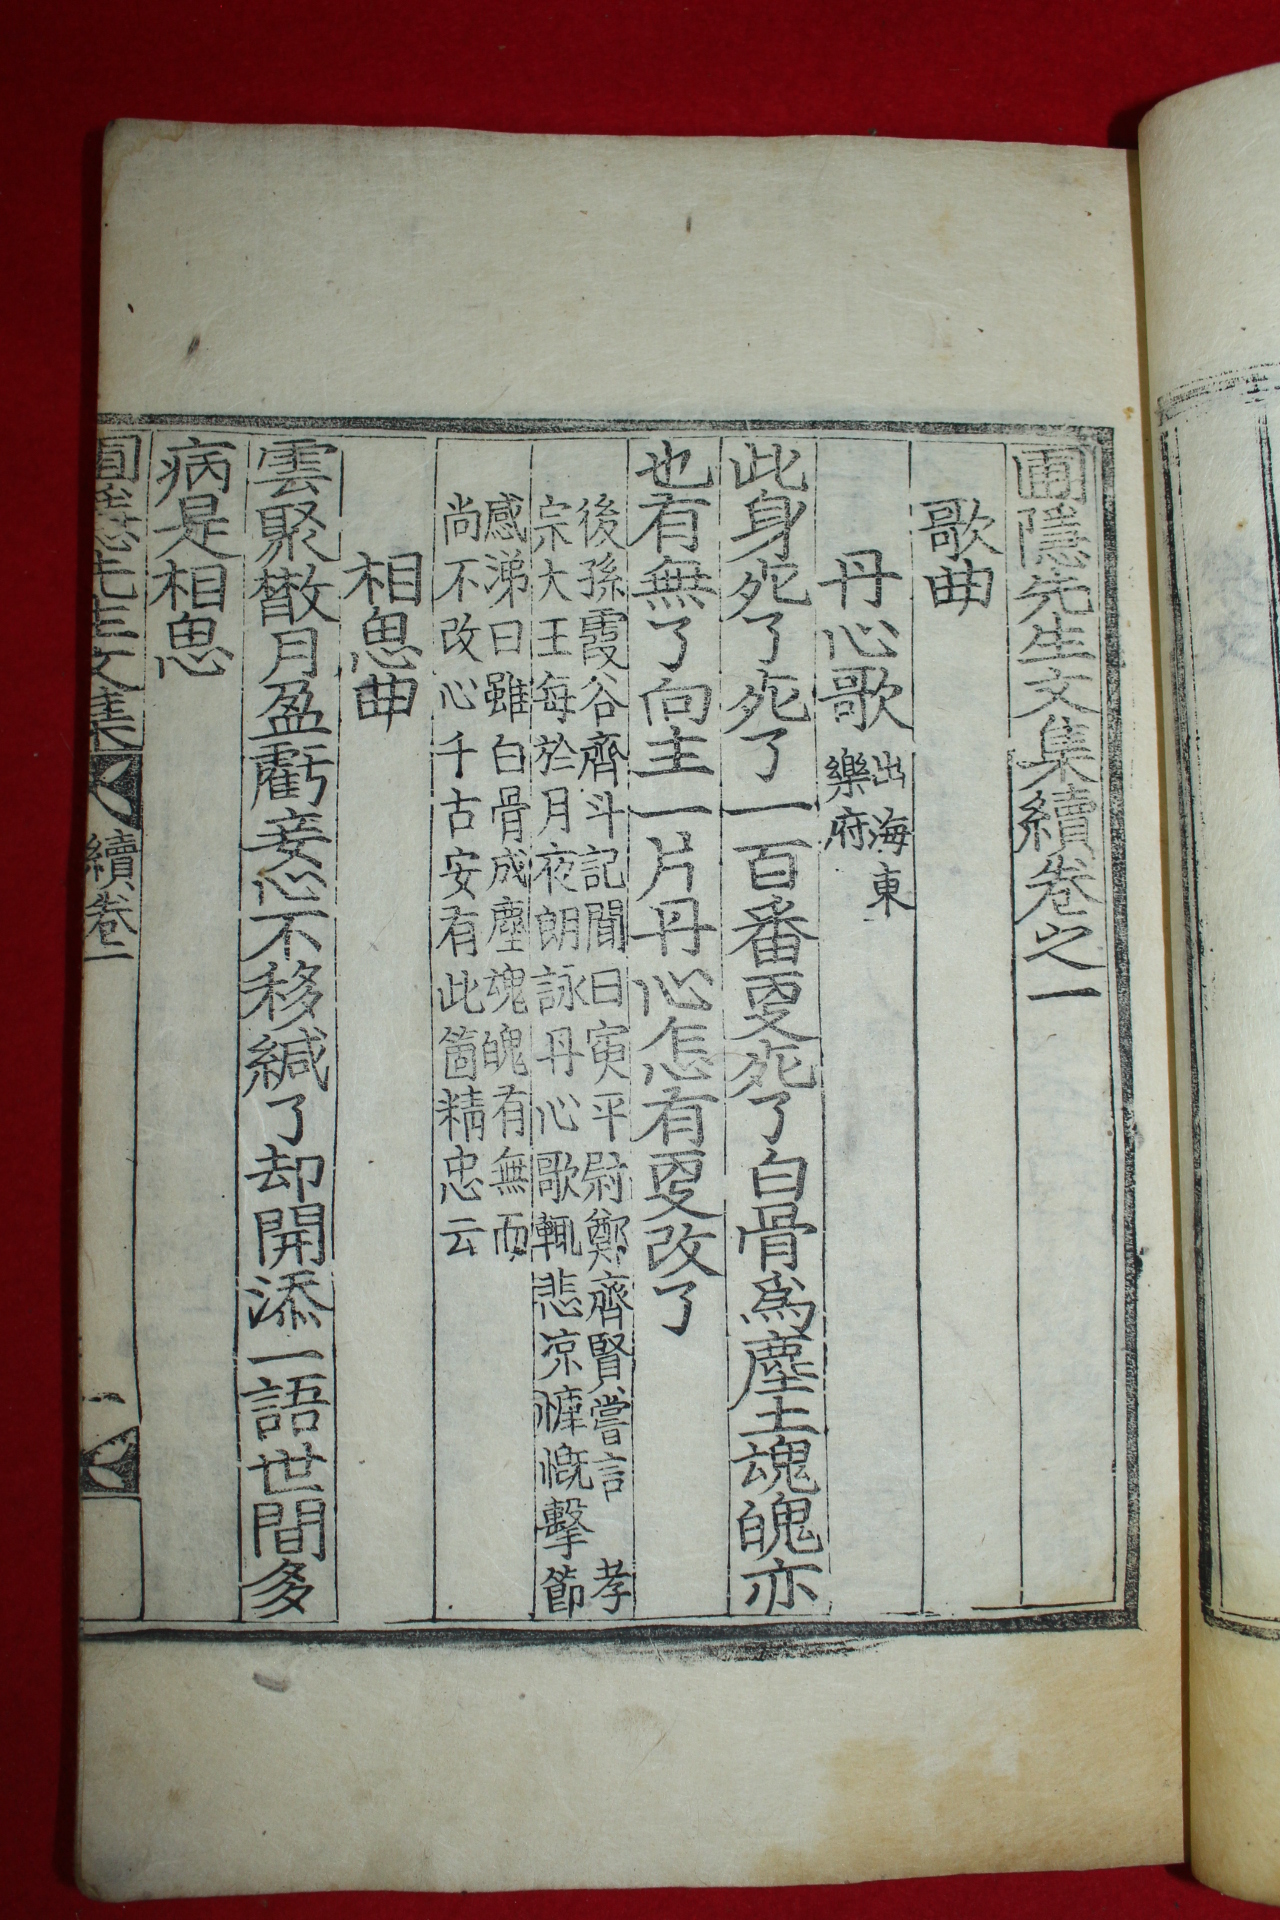 圃隱先生文集續卷之一
歌曲
丹心歌 出海東
樂府
此身死了死了一百番更死了白骨爲塵土魂魄亦
也有無了向主一片丹心怎有更改了
後孫霞谷齊斗記聞曰寅平尉鄭齊賢嘗言 孝
宗大王每於月夜朗詠丹心歌輒悲凉慷慨擊節
感涕曰雖白骨成塵魂魄有無而
尚不改心千古安有此箇精忠云
相思曲
雲聚散月盈虧妾心不移緘了却開添一語世間多
病是相思
圃隱先生文集 續卷一 一